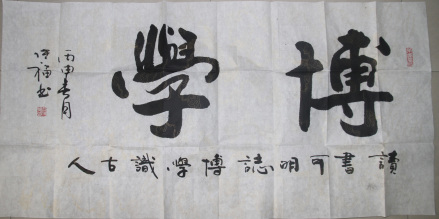 博學
讀書可明誌博學識古人
丙申春月
洪福書